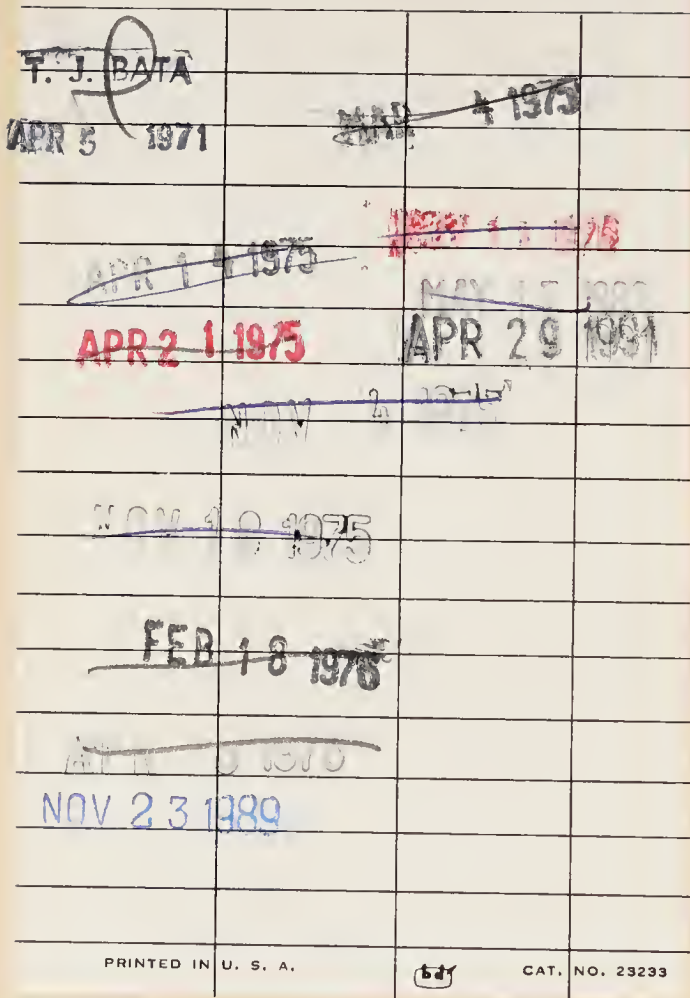 T. J. BATA
APR 5 1971
MAR 4 1975
APR 14 1975
APR 21 1975
APR 29 1991
NOV
NOV 1975
FEB 18 1976
NOV 23 1989
PRINTED IN U. S. A.
bdr CAT. NO. 23233